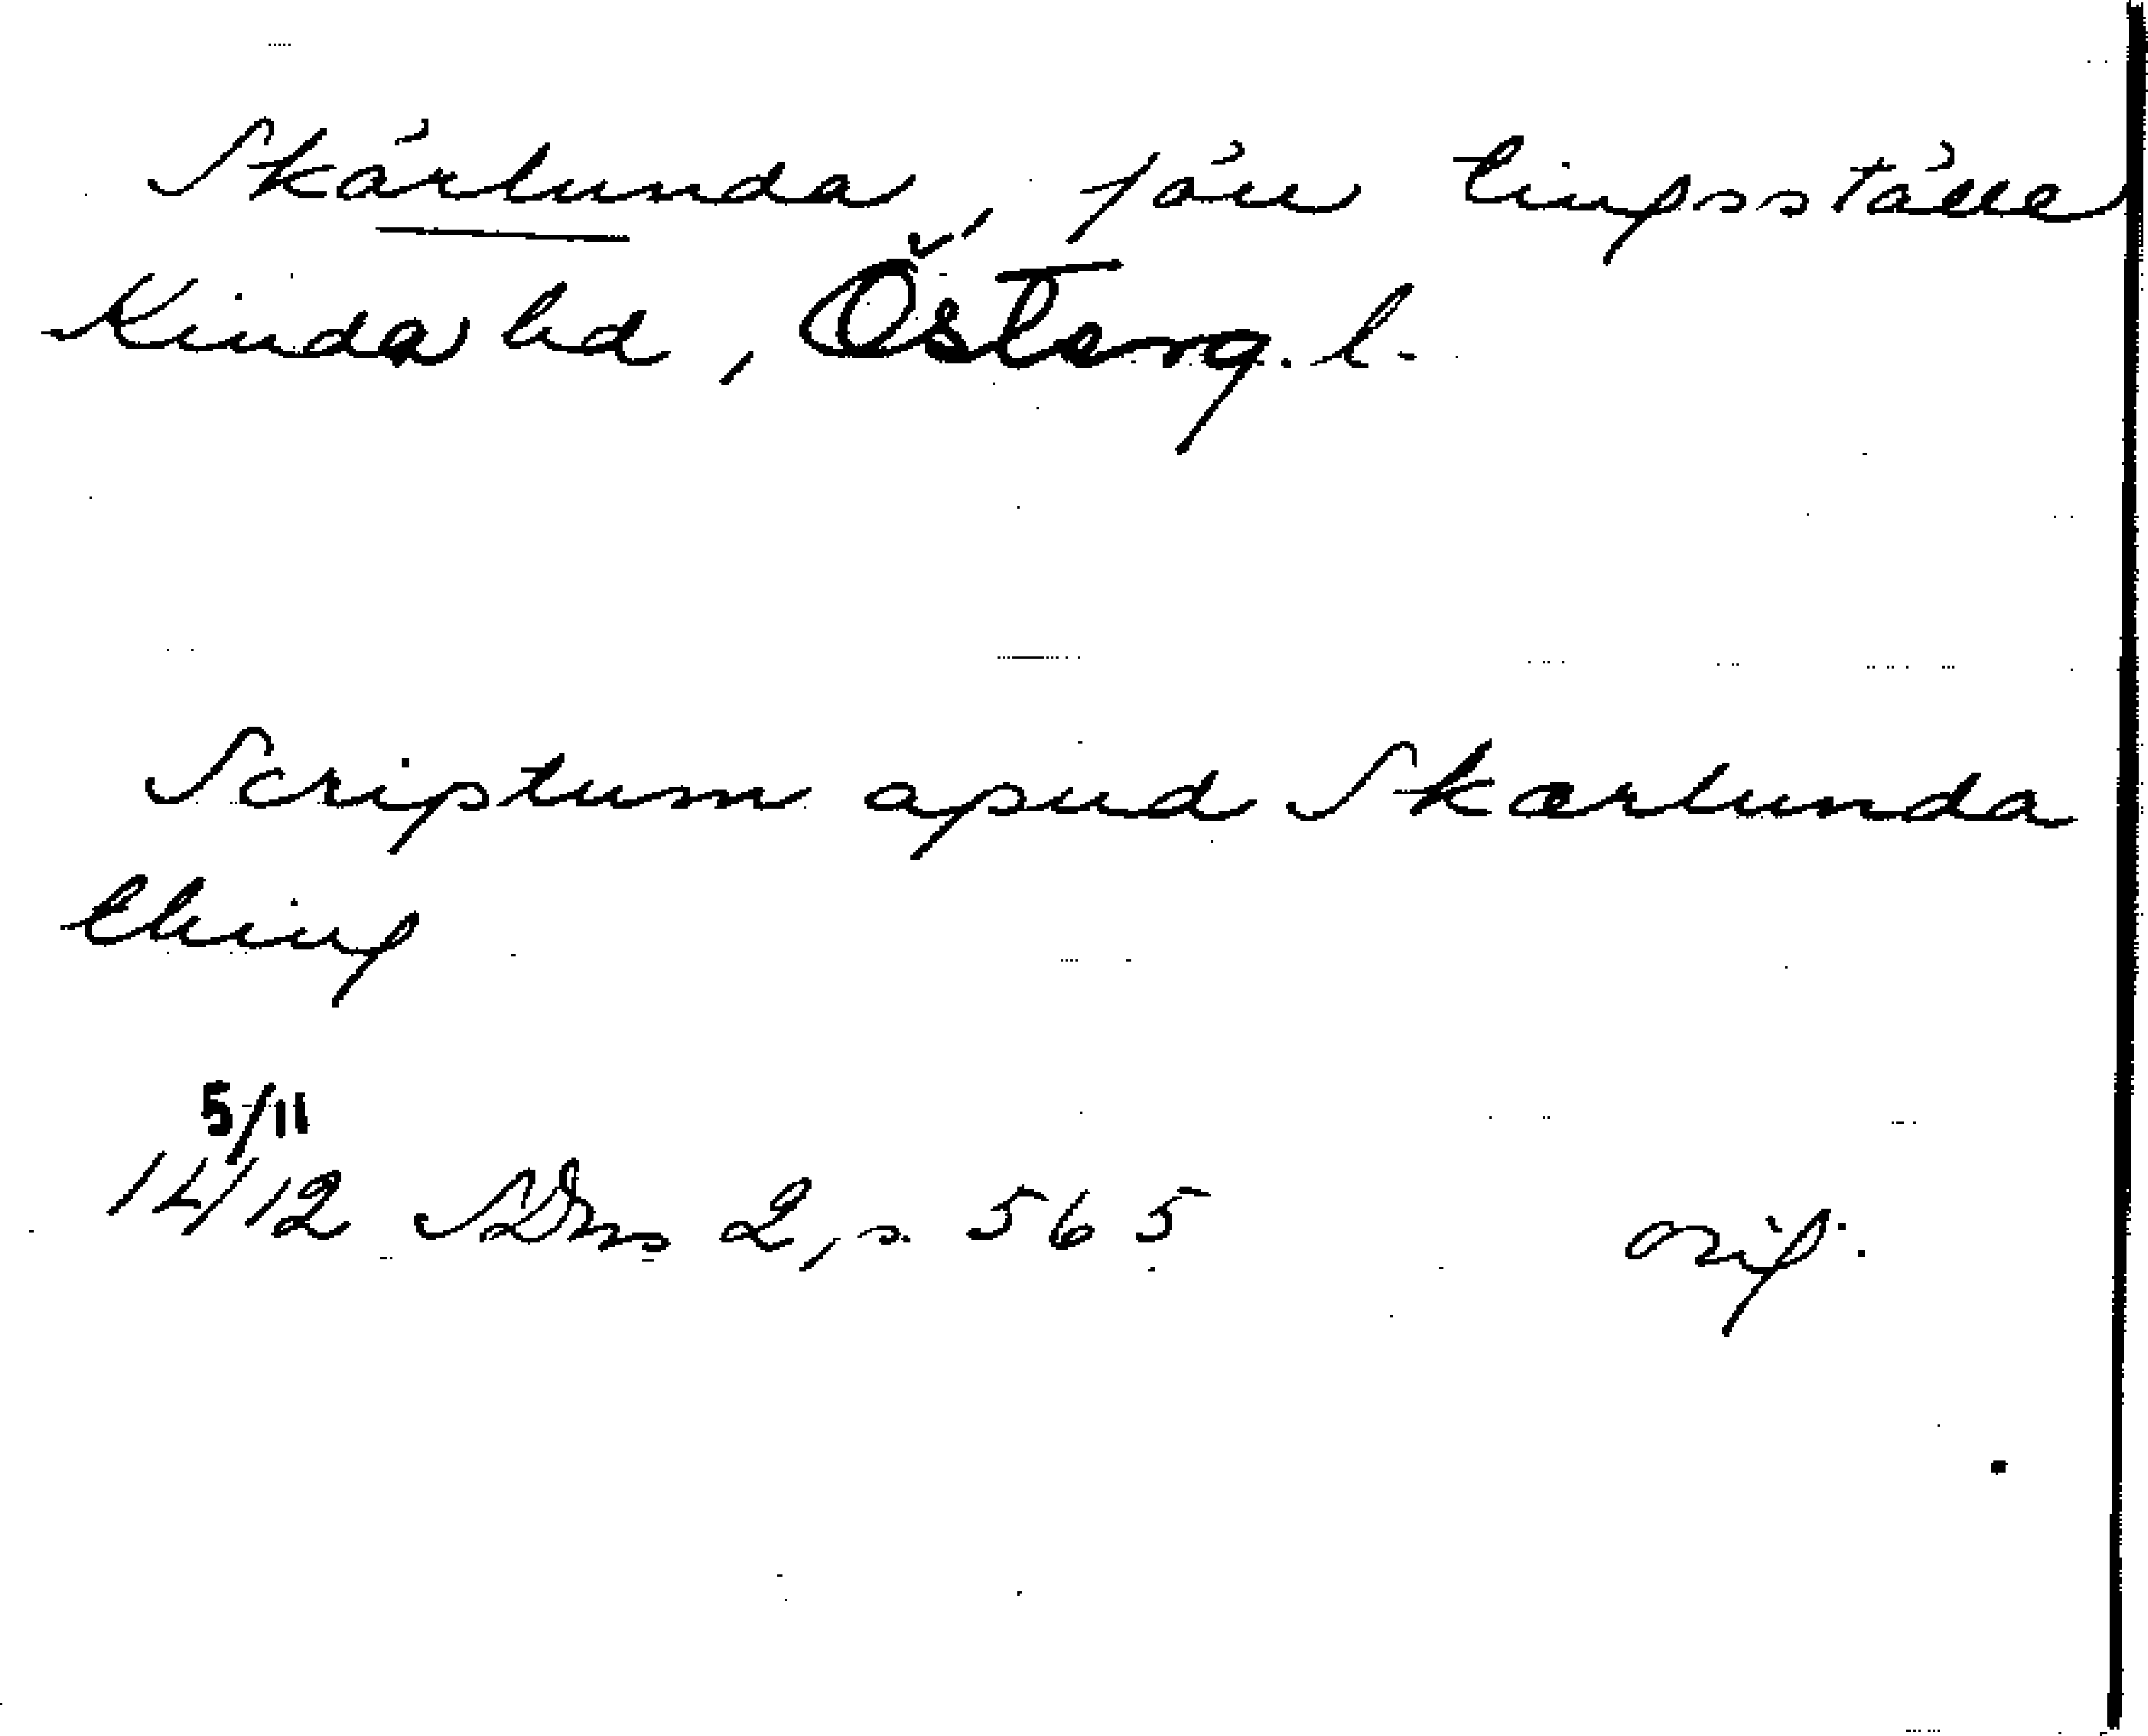 Skärlunda, förr tingsställe
Kinda hd, Österg. l.
Scriptum apud Skærlunda
thing
5/11
1412 SDns 2, s. 565 orig.